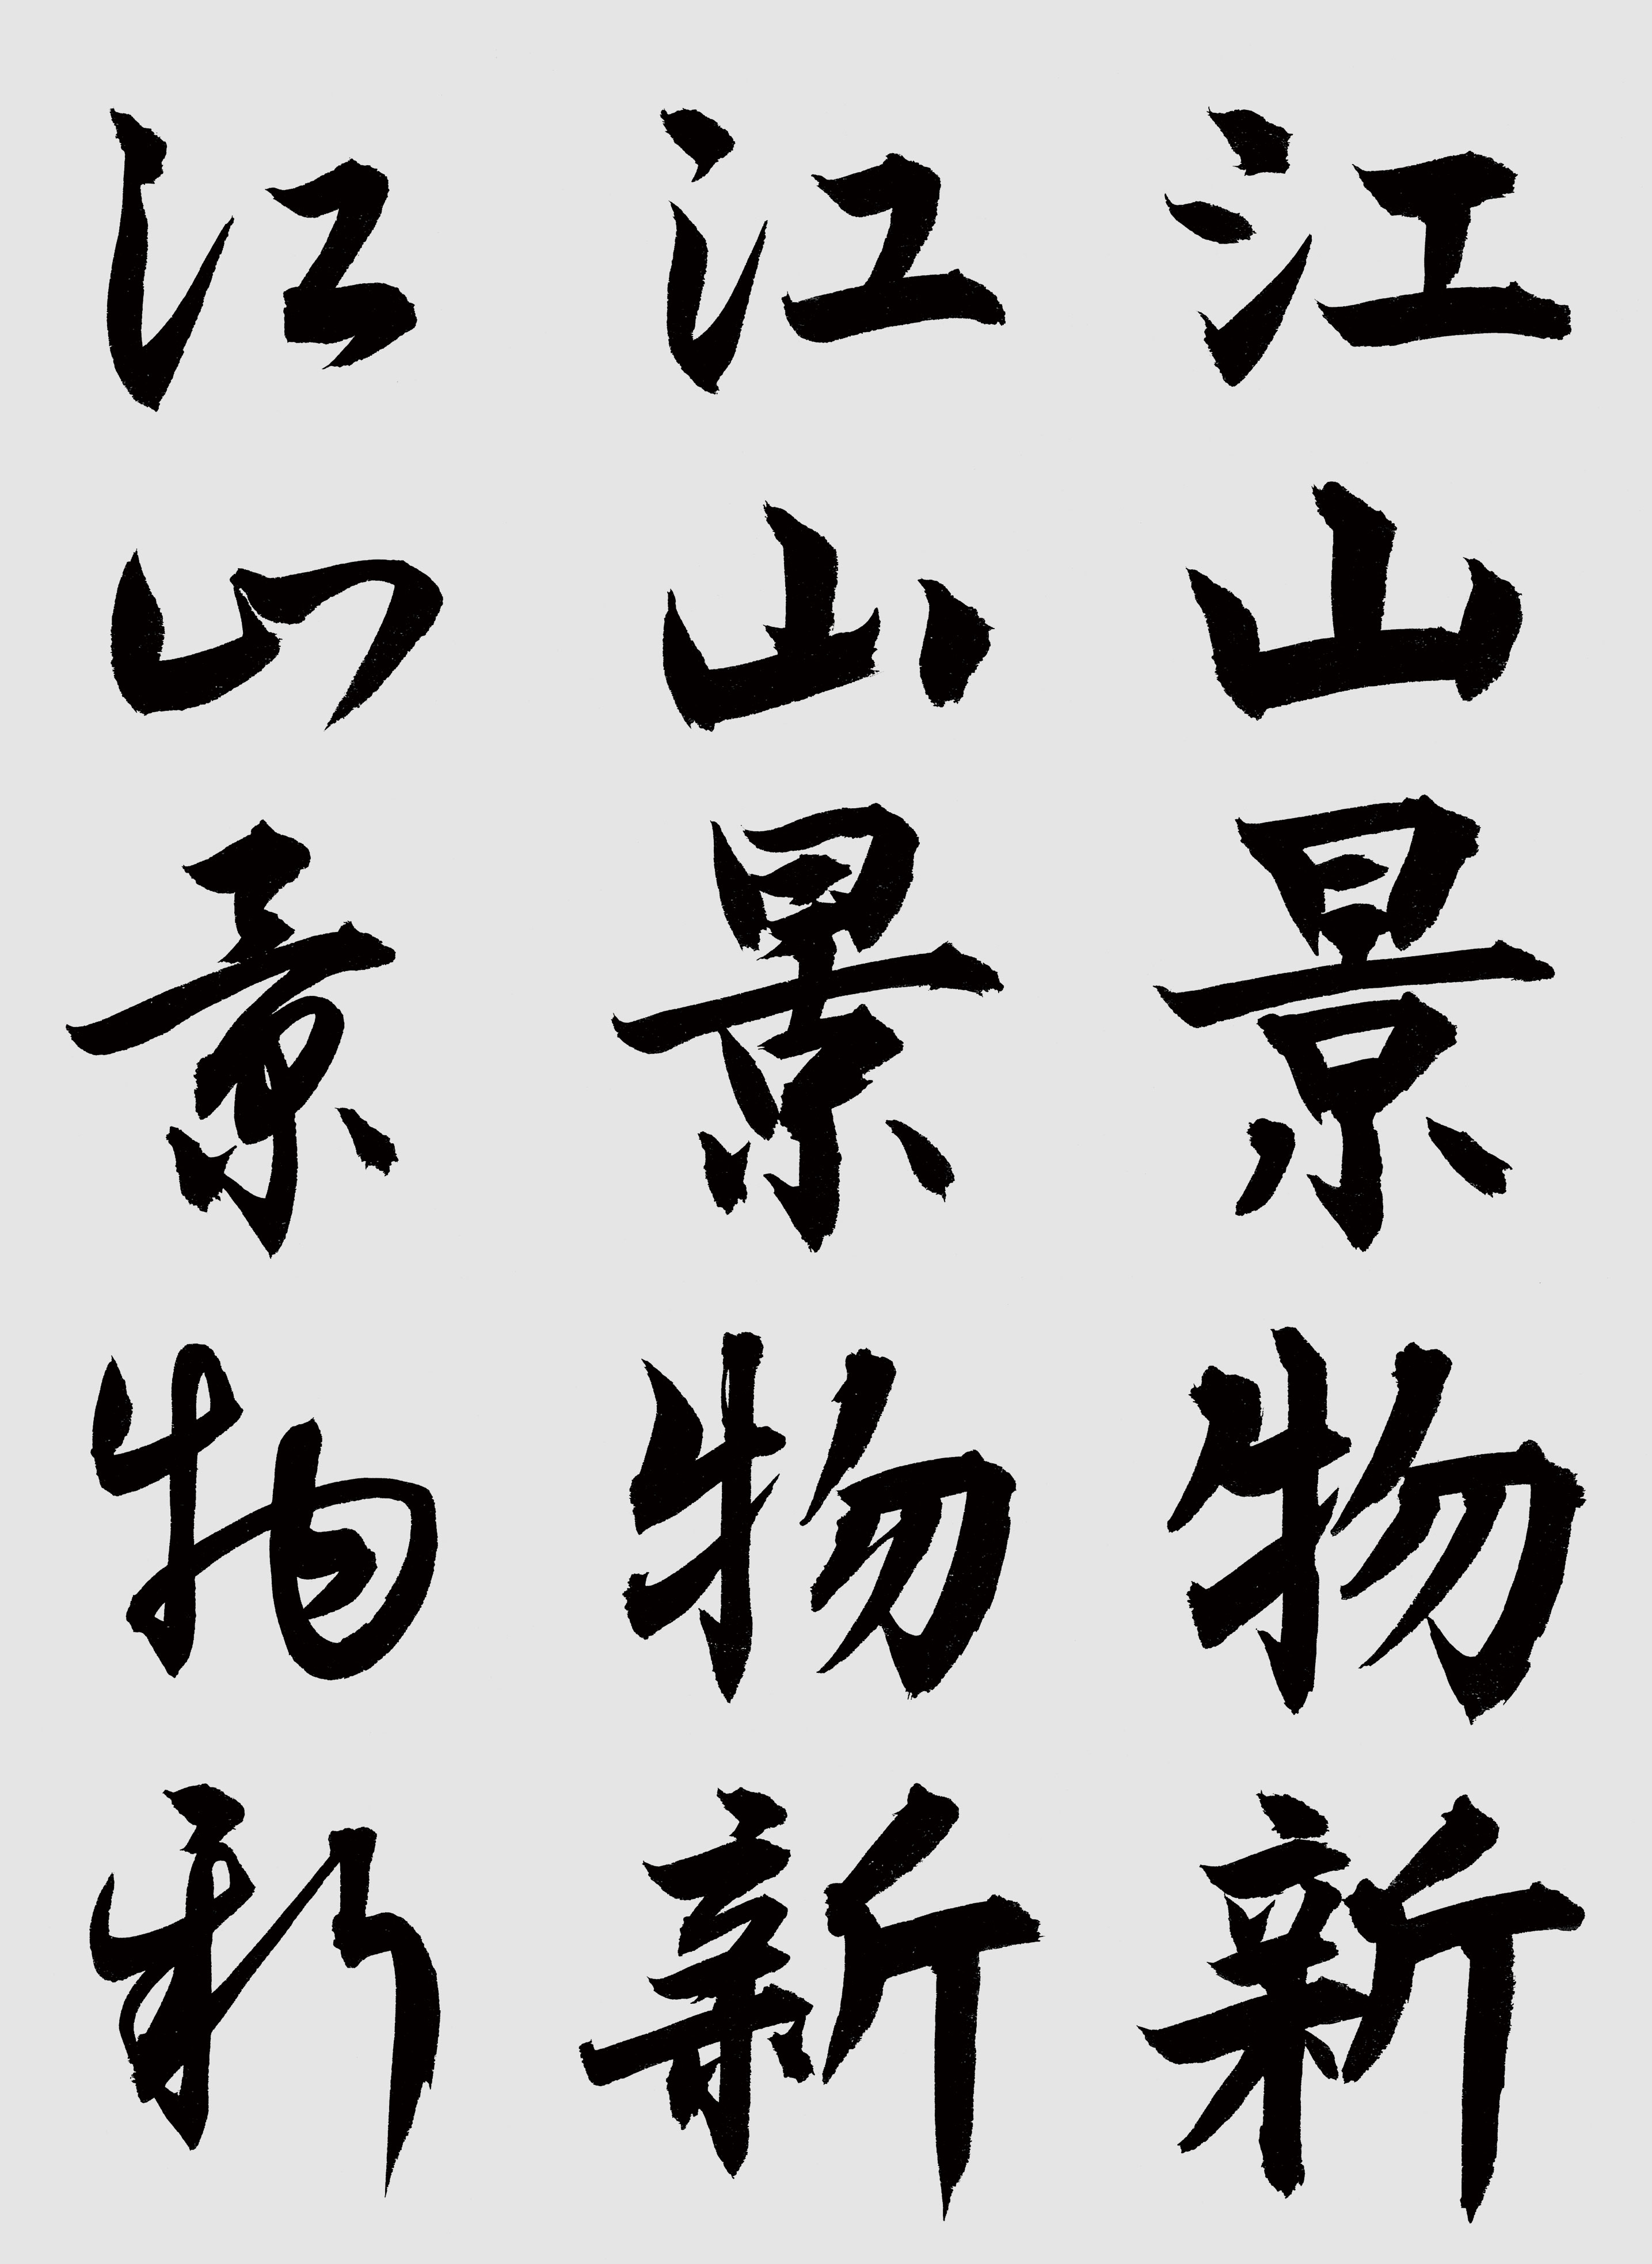 江山景物新
江山景物新
江山景物新